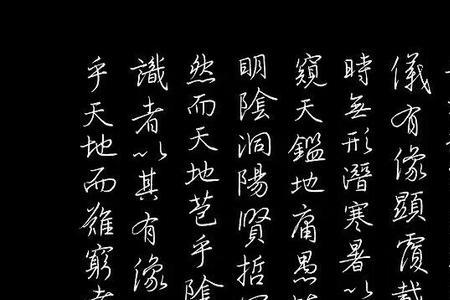 儀有像顯覆載
時無形潛寒暑以
窺天鑑地庸愚
明陰洞陽賢哲
然而天地苞乎陰
識者以其有像
乎天地而難窮者